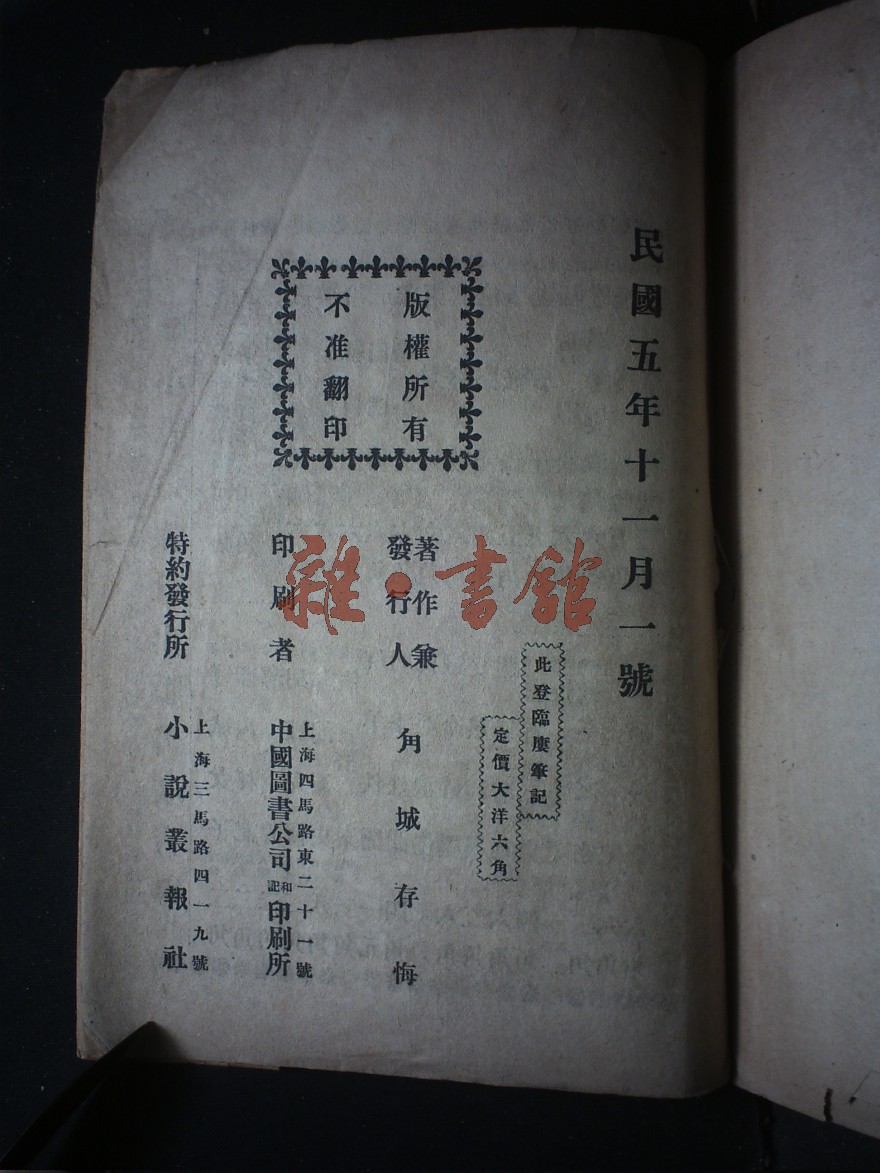 民國五年十一月一號
此登臨廔筆記
定價大洋六角
版權所有
不准翻印
著作兼
發行人
角城存悔
印刷者
上海四馬路東二十一號
中國圖書公司和記印刷所
特約發行所
上海三馬路四一九號
小說叢報社
雜·書館